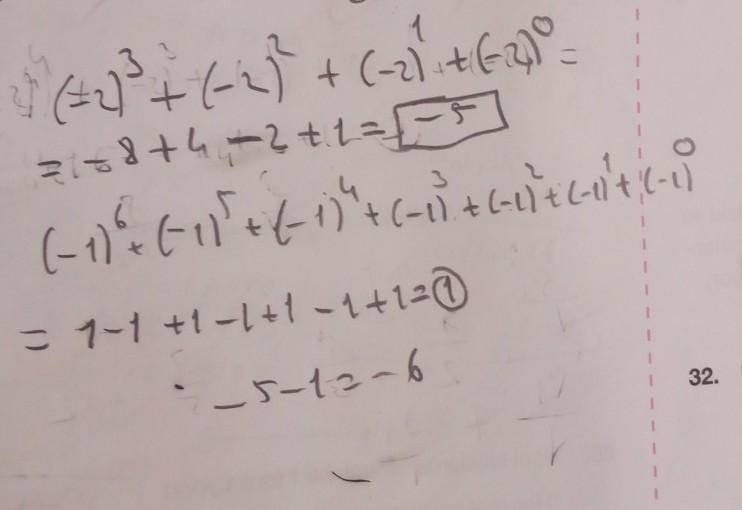 (-2)³ + (-2)² + (-2)¹ + (-2)⁰ =
= - 8 + 4 - 2 + 1 = -5
(-1)⁶ + (-1)⁵ + (-1)⁴ + (-1)³ + (-1)² + (-1)¹ + (-1)⁰
= 1 - 1 + 1 - 1 + 1 - 1 + 1 = 1
- 5 - 1 = - 6
32.